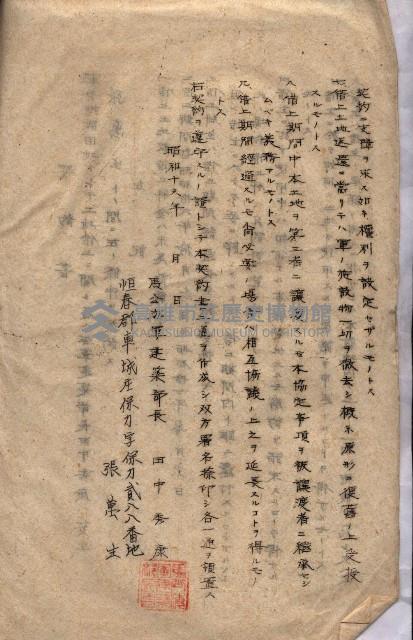 契約ニ支障ヲ来ス如キ權利ヲ設定セザルモノトス
七、借上土地返還ニ當リテハ軍ノ施設物一切ヲ撤去シ概ネ原形ニ復舊ノ上交授
スルモノトス
八、借上期間中本土地ヲ第三者ニ讓渡スルモ本協定事項ヲ被讓渡者ニ繼承セシ
ムベキ義務アルモノトス
九、借上期間經過スルモ尚必要ノ場合ハ相互協議ノ上之ヲ延長スルコトヲ得ルモノ
トス
右契約ヲ遵守スルノ證トシテ本契約書二通ヲ作成シ双方署名捺印シ各一通ヲ領置ス
昭和十六年 月 日
台灣軍建築部長 田中秀康
恒春郡車城庄保力字保力貳八八番地
張萬生
高雄市立歷史博物館
KAOHSIUNG MUSEUM OF HISTORY